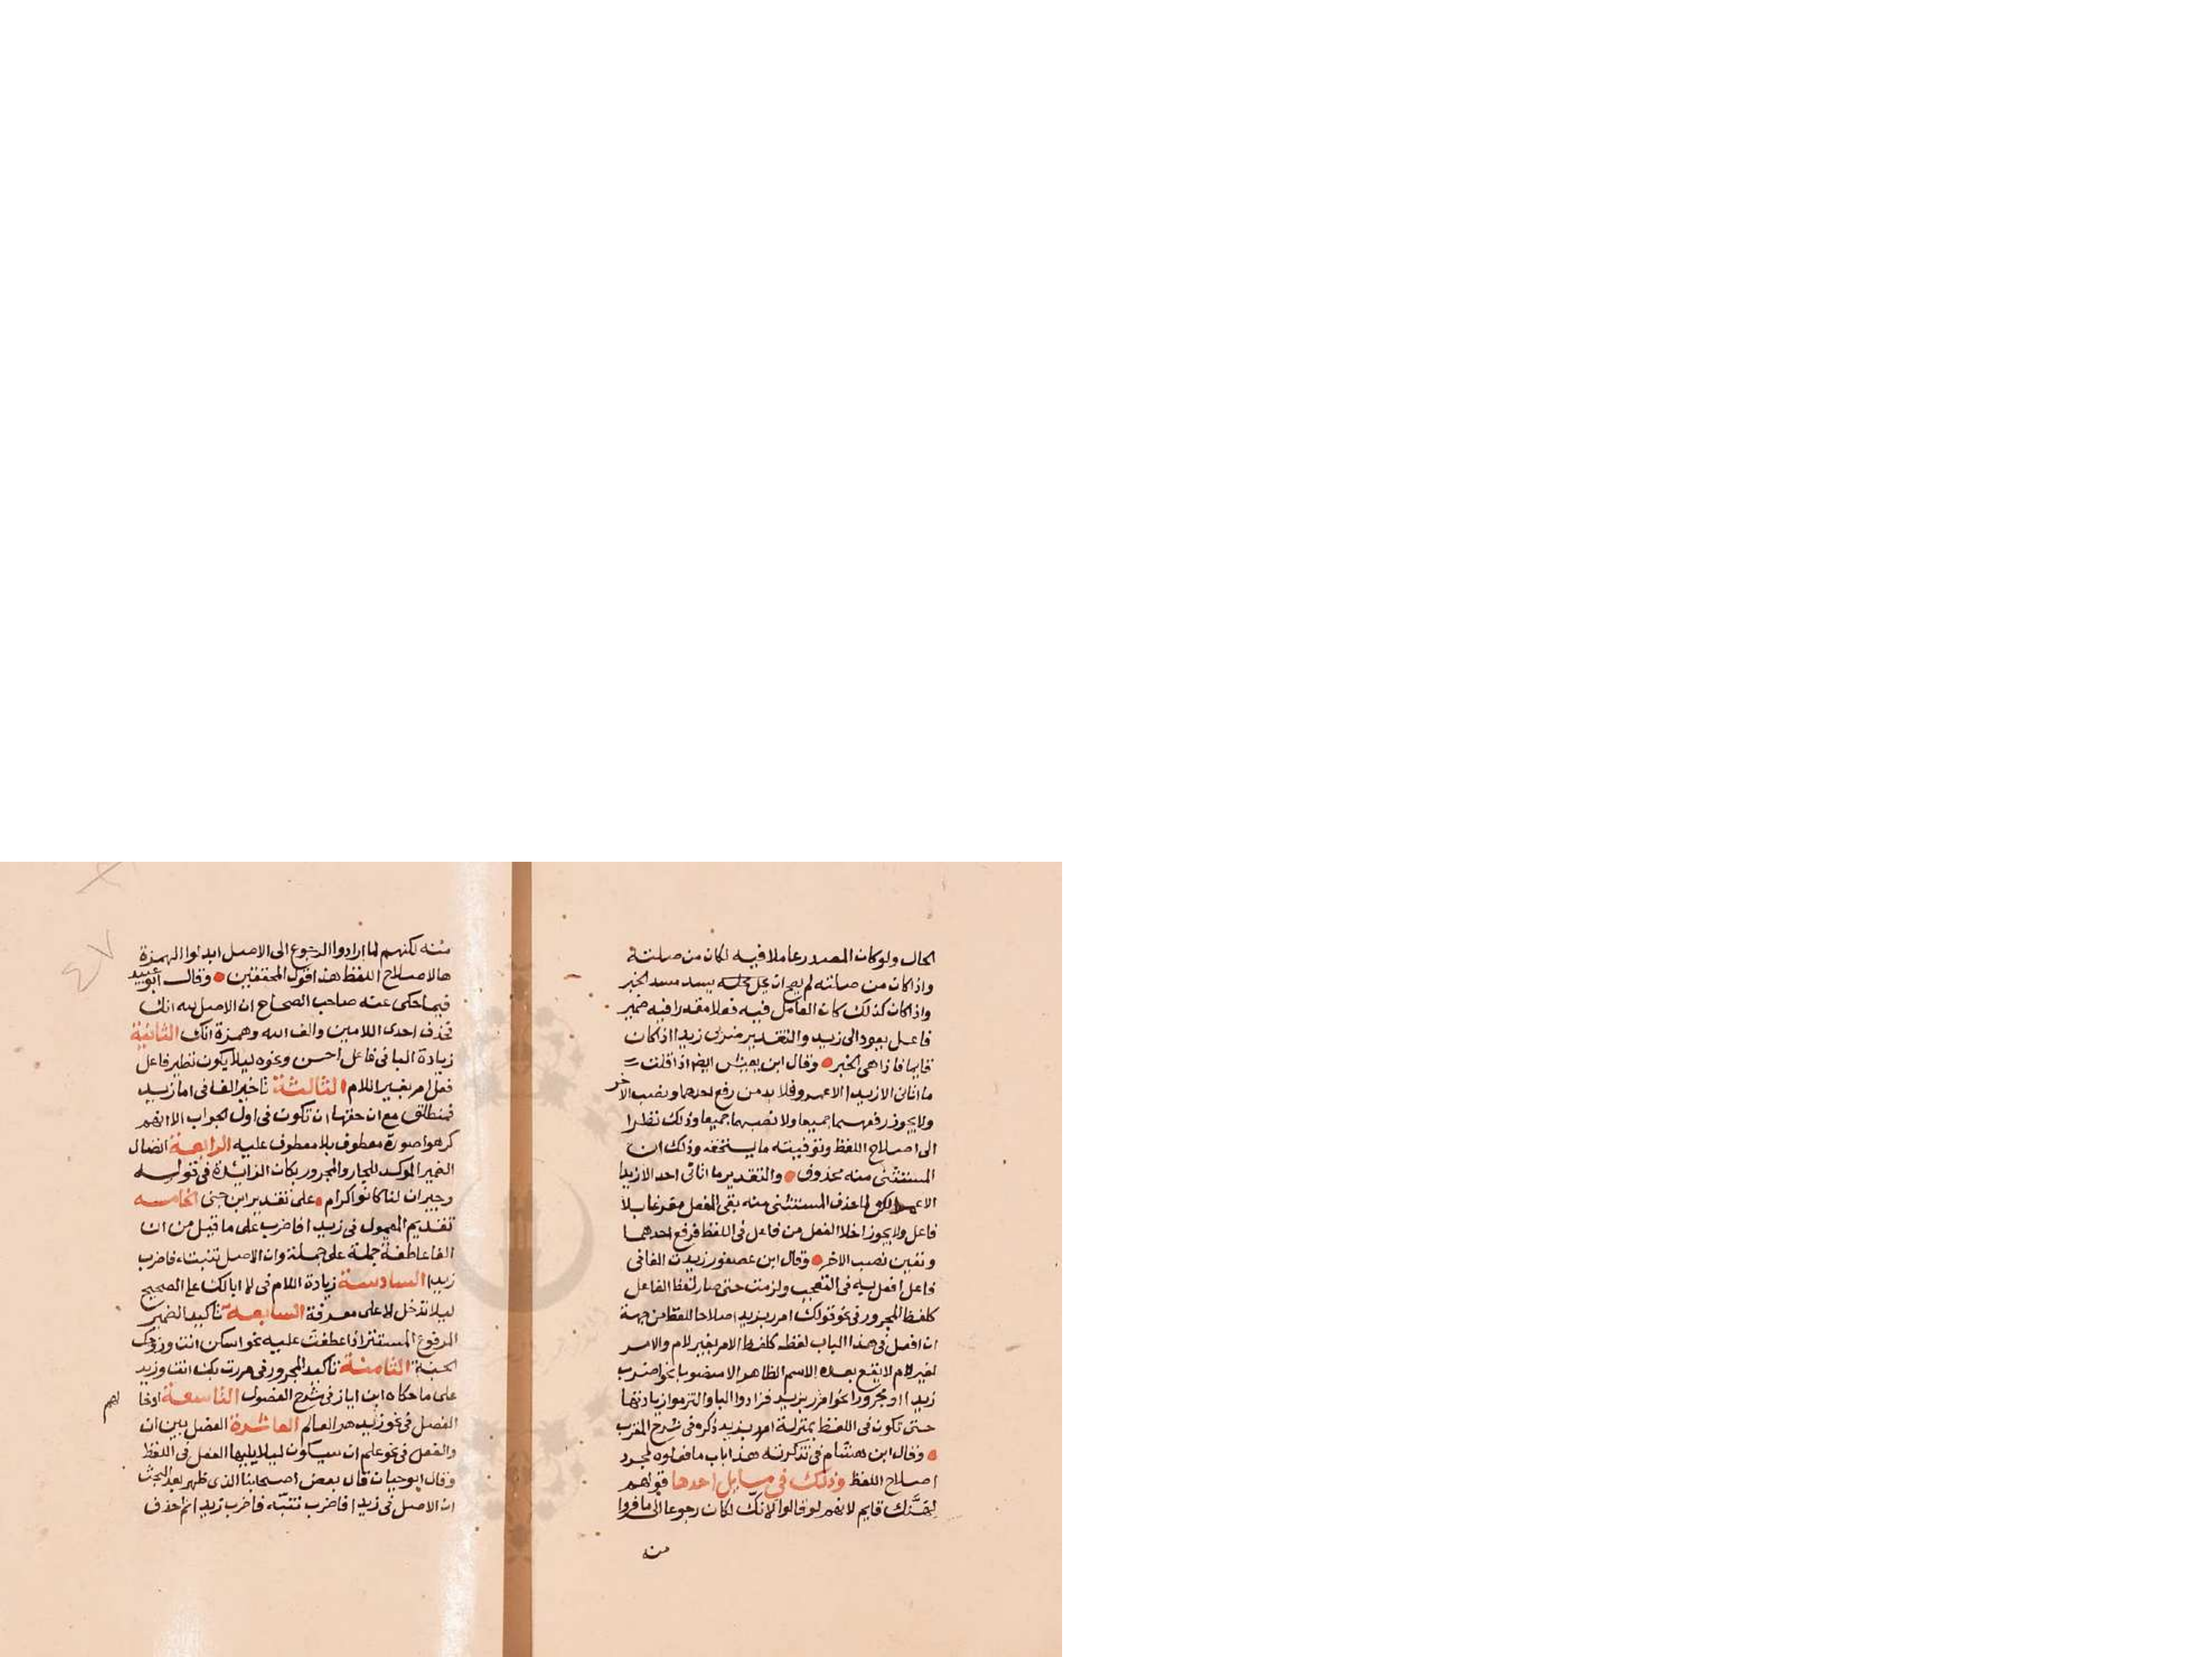 الحال ولو كان المصدر عاملا فيه لكان من صلته
واذا كان من صلته لم يصح ان يحل محله يسد مسد الخبر
واذا كان كذلك كان العامل فيه فعلا مقدرا فيه ضمير
فاعل يعود الى زيد والتقدير ضربى زيدا اذا كان
قايما فاذا هى الخبر وقال ابن يعيش ايضا اذا قلت
ما اتانى الا زيدا الا عمرو فلا بد من رفع احدهما ونصب الآخر
ولا يجوز رفعهما جميعا ولا نصبهما جميعا وذلك نظرا
الى اصلاح اللفظ وتوفيته ما يستحقه وذلك ان
المستثنى منه محذوف والتقدير ما اتانى احد الا زيدا
الا عمرا لكن لما حذف المستثنى منه بقى الفعل مفرغا بلا
فاعل ولا يجوز اخلا الفعل من فاعل فى اللفظ فرفع احدهما
وتعين نصب الاخر وقال ابن عصفور زيدت البا فى
فاعل افعل به فى التعجب ولزمت حتى صار لفظ الفاعل
كلفظ المجرور فى نحو قولك امرر بزيد اصلاحا للفظ من جهة
ان افعل فى هذا الباب لفظه كلفظ الامر بغير لام والامر
بغير لام لا يقع بعده الاسم الظاهر الا منصوبا نحو اضرب
زيدا او مجرورا نحو امرر بزيد فزادوا البا والتزموا زيادتها
حتى تكون فى اللفظ بمنزلة امرر بزيد ذكره فى شرح المقرب
وقال ابن هشام فى تذكرته هذا باب ما فعلوه لمجرد
اصلاح اللفظ وذلك فى مسايل احدها قولهم
لهنك قايم لانهم لو قالوا لانك لكان رجوعا الى ما فروا
منه
منه لكنهم لما ارادوا الرجوع الى الاصل ابدلوا الهمزة
ها لاصلاح اللفظ هذا قول المحققين وقال ابو عبيد
فيما حكى عنه صاحب الصحاح ان الاصل لله انك
فحذف احدى اللامين والف الله وهمزة انك الثانية
زيادة البا فى فاعل احسن ونحوه ليلا يكون نظير فاعل
فعل امر بغير اللام الثالثة تاخير الفا فى اما زيد
فمنطلق مع ان حقها ان تكون فى اول الجواب الا انهم
كرهوا صورة معطوف بلا معطوف عليه الرابعة اتصال
الضمير الموكد للجار والمجرور بكان الزائدة فى قوله
وجيران لنا كانوا كرام على تقدير ابن جنى الخامسه
تقديم المعمول فى زيدا فاضرب على ما قيل من ان
الفا عاطفة جملة على جملة وان الاصل تنبه فاضرب
زيدا السادسة زيادة اللام فى لا ابا لك على الصحيح
ليلا تدخل لا على معرفة السابعه تاكيد الضمير
المرفوع المستتر اذا عطفت عليه نحو اسكن انت وزوجك
الجنة الثامنة تاكيد المجرور فى مررت بك انت وزيد
على ما حكاه ابن اياز فى شرح الفصول التاسعة ادخا لهم
الفصل فى نحو زيد هو العالم العاشرة الفصل بين ان
والفعل فى نحو علم ان سيكون ليلا يليها الفعل فى اللفظ
وقال ابو حيان قال بعض اصحابنا الذى ظهر بعد البحث
ان الاصل فى زيدا فاضرب تنبه فاضرب زيدا ثم حذف